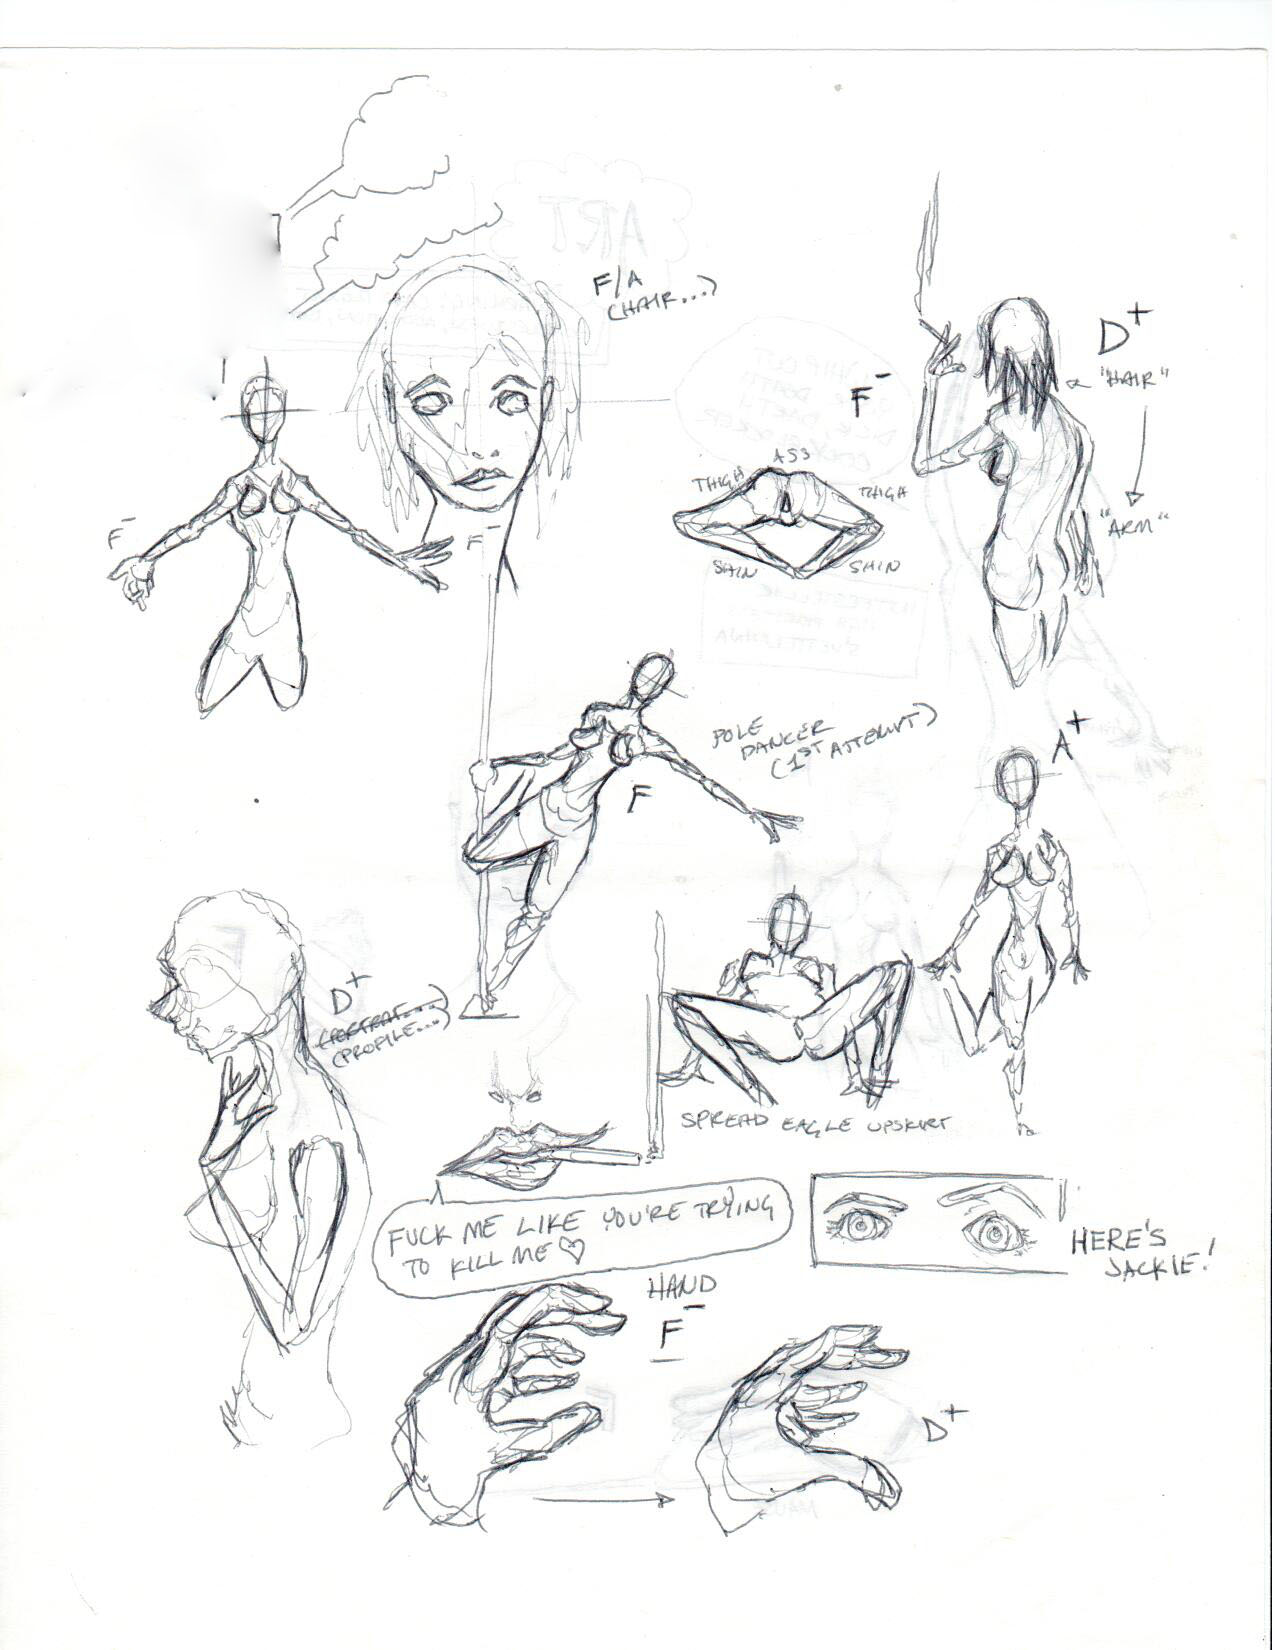 ART
F/A
(HAIR...)
D+
"HAIR"
"ARM"
F-
ASS
THIGH
THIGH
SHIN
SHIN
F-
F-
POLE
DANCER
(1ST ATTEMPT)
F
A+
D+
(PROFILE...)
SPREAD EAGLE UPSKIRT
FUCK ME LIKE YOU'RE TRYING
TO KILL ME ♡
HERE'S
JACKIE!
HAND
F-
D+